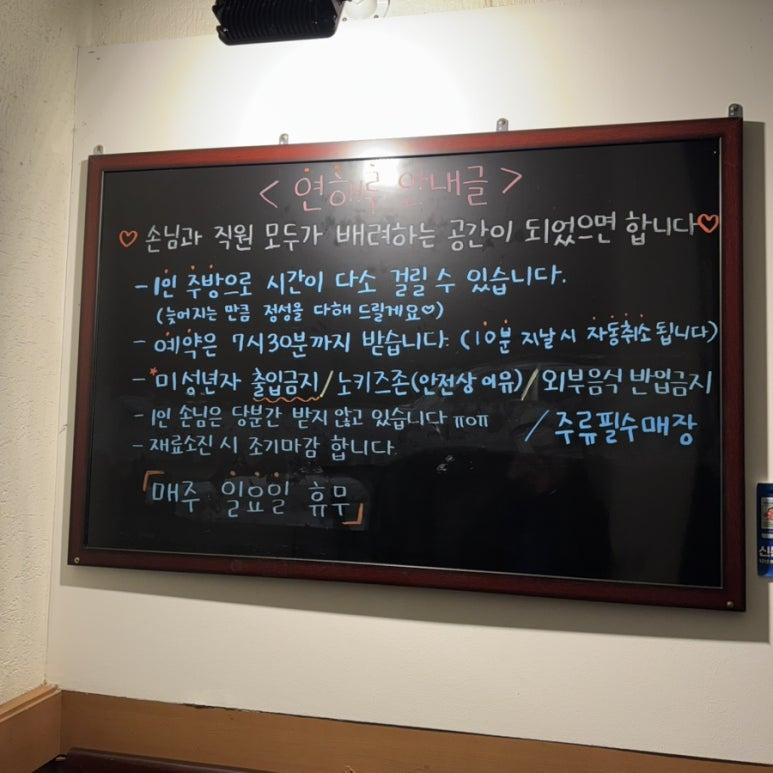 < 연해루 안내글 >
♡ 손님과 직원 모두가 배려하는 공간이 되었으면 합니다♡
- 1인 주방으로 시간이 다소 걸릴 수 있습니다.
(늦어지는 만큼 정성을 다해 드릴게요♡)
- 예약은 7시30분까지 받습니다. (10분 지날 시 자동취소 됩니다)
- *미성년자 출입금지/노키즈존(안전상 이유)/외부음식 반입금지
/주류필수매장
- 1인 손님은 당분간 받지 않고 있습니다 ㅠoㅠ
- 재료소진 시 조기마감 합니다.
「매주 일요일 휴무」